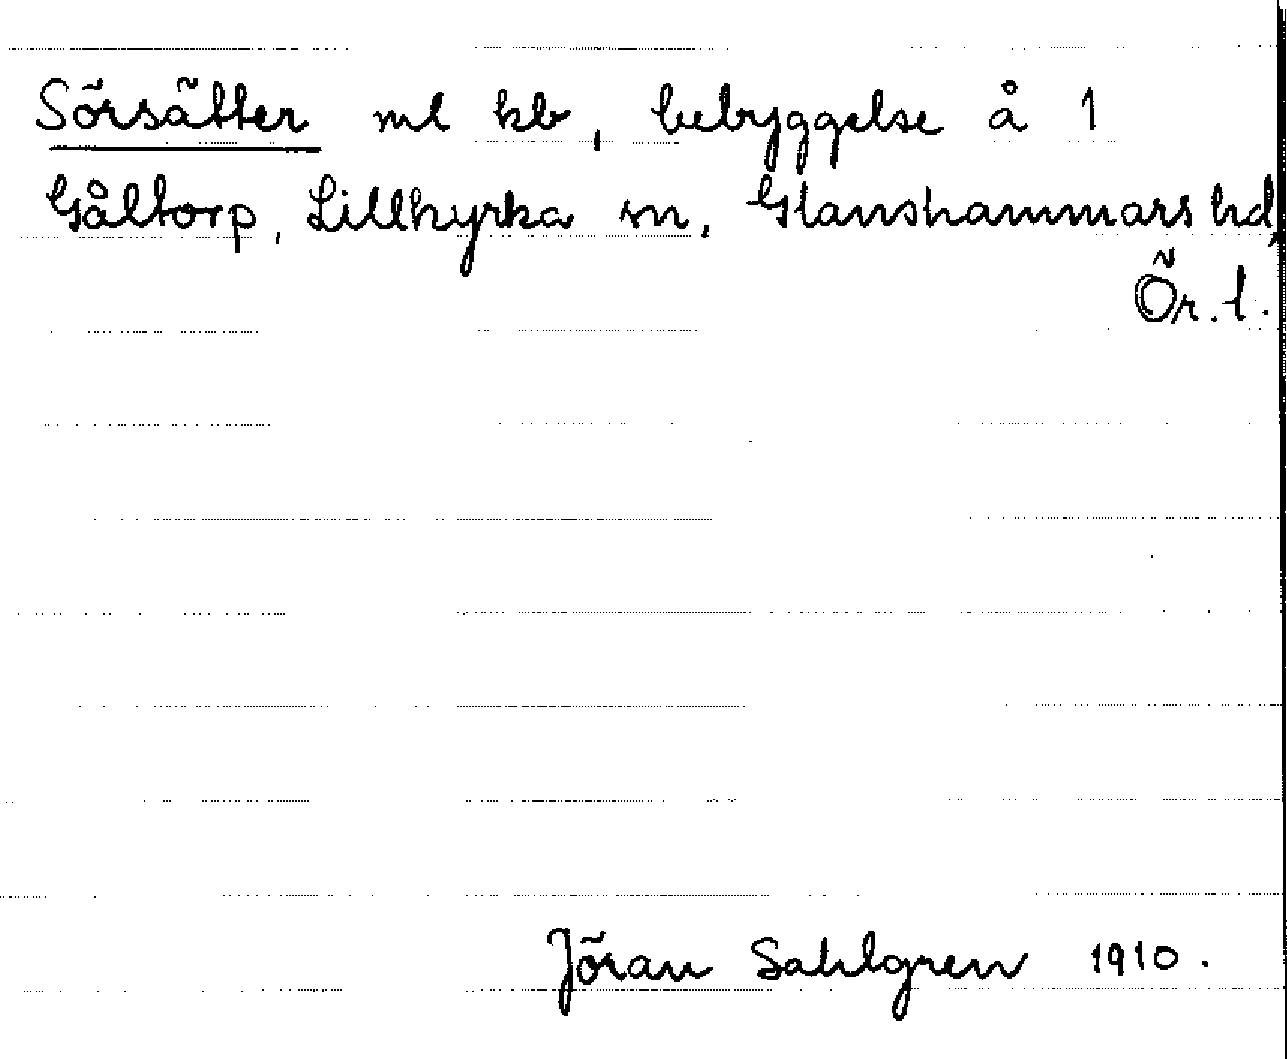 Sörsätter ml kb, bebyggelse å 1
Gåltorp, Lillkyrka sn, Glanshammars hd,
Ör. l.
Jöran Sahlgren 1910.